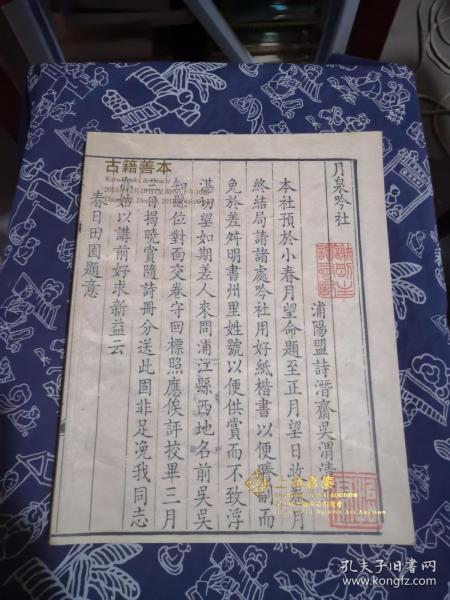 月泉吟社
浦陽盟詩潛齋吳渭清
本社預於小春月望命題至正月望日收卷月
終結局請諸處吟社用好紙楷書以便謄副而
免於差舛明書州里姓號以便供賞而不致浮
湛切望如期差人來問浦江縣西地名前吳吳
知縣位對面交卷守回標照應俟評校畢三月
三日揭曉賞隨詩冊分送此固非足浼我同志
姑以講前好求新益云
春日田園題意
古籍善本
Rare Books &
上海嘉泰
AUCTION
孔夫子旧书网
www.kongfz.com